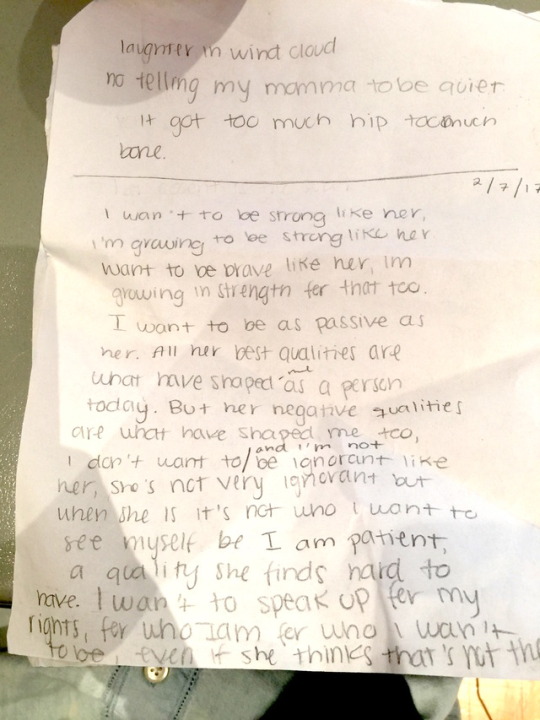 laughter in wind cloud
no telling my momma to be quiet
it got too much hip too much
bone.
2/7/17
I wan't to be strong like her,
i'm growing to be strong like her
want to be brave like her, Im
growing in strength fer that too.
I want to be as passive as
her. All her best qualities are
what have shaped me as a person
today. But her negative qualities
are what have shaped me too,
I don't want to/and i'm not be ignorant like
her, she's not very ignorant but
when she is it's not who I want to
see myself be I am patient,
a quality she finds hard to
have. I wan't to speak up fer my
rights, fer who I am fer who i wan't
to be, even if she thinks that's not the